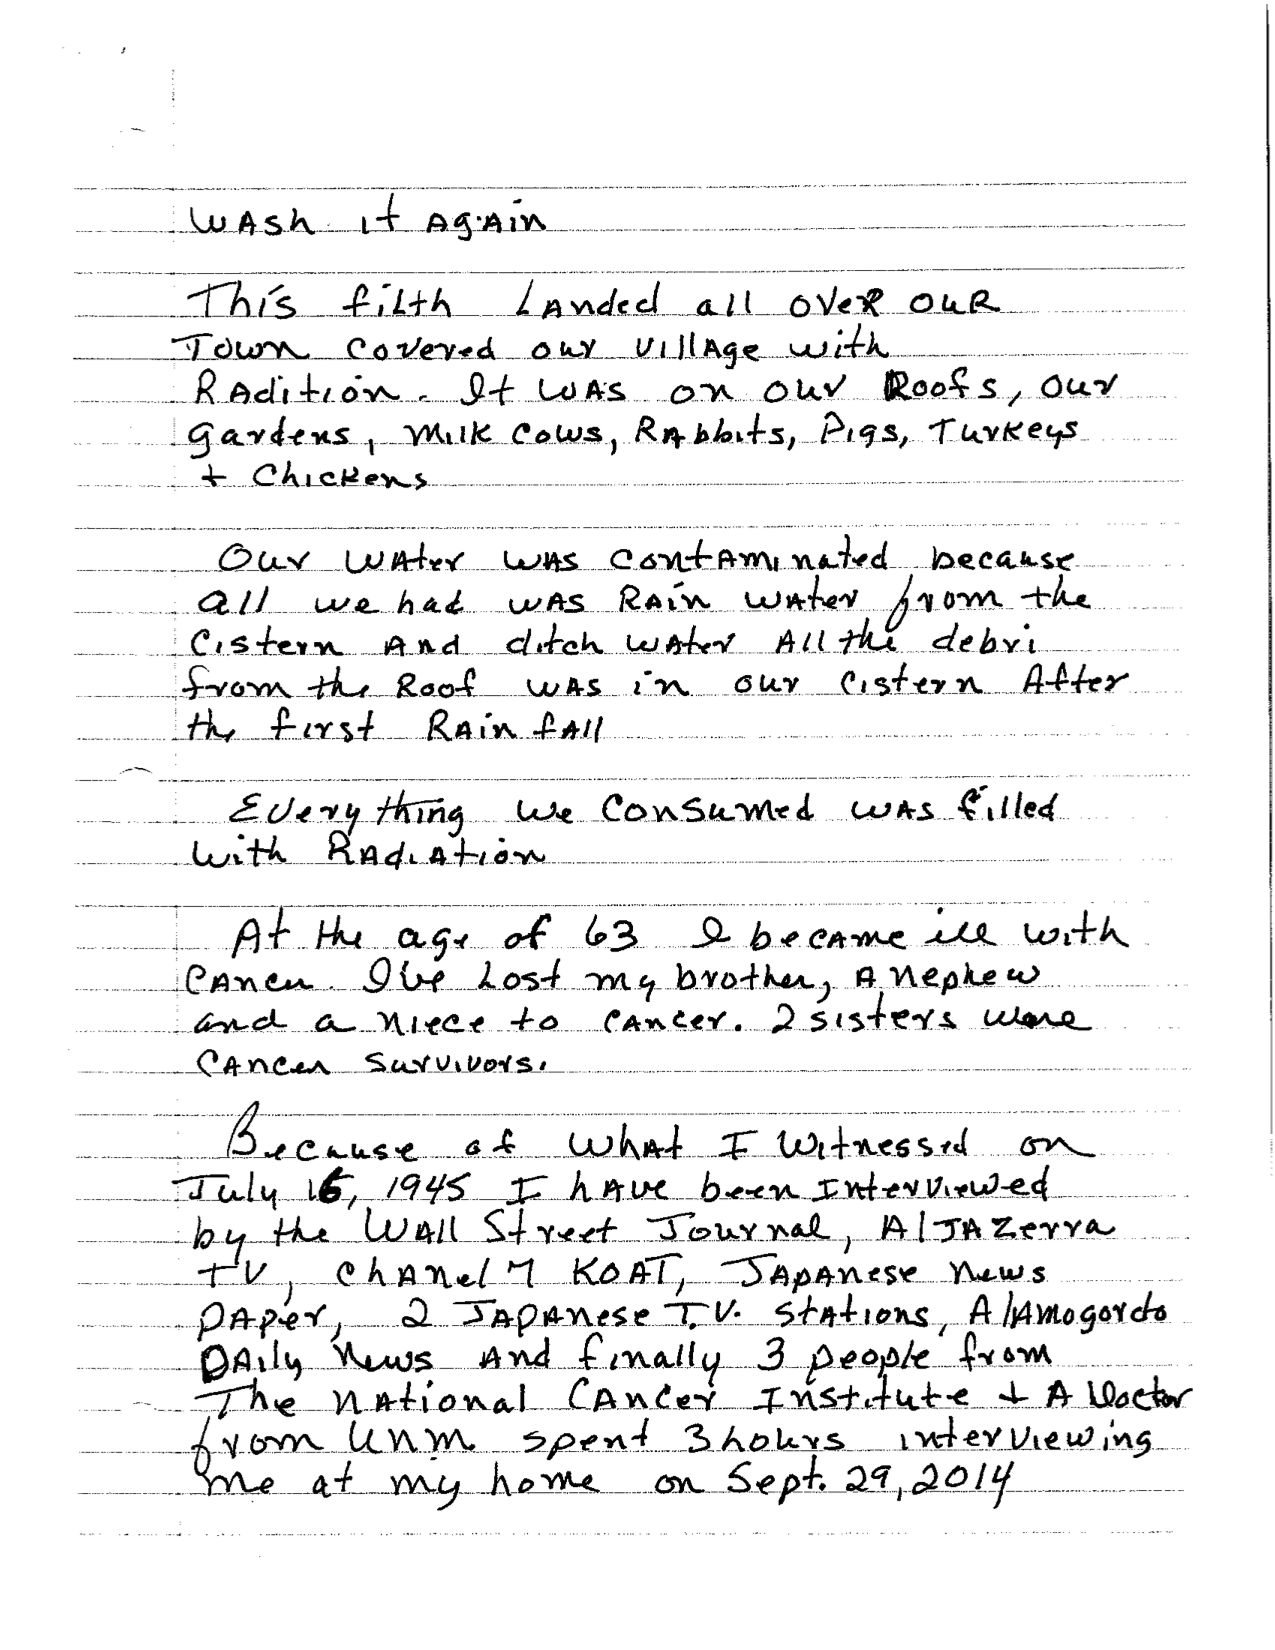 Wash it Again
This filth Landed all over our
Town covered our village with
Radition. It was on our Roofs, our
gardens, Milk Cows, Rabbits, Pigs, Turkeys
+ Chickens
Our water was contaminated because
all we had was Rain water from the
Cistern and ditch water All the debri
from the Roof was in our Cistern After
the first Rain fall
Everything we consumed was filled
with Radiation
At the age of 63 I became ill with
Cancer. I've Lost my brother, A nephew
and a niece to cancer. 2 sisters were
Cancer Survivors.
Because of what I witnessed on
July 16, 1945 I have been Interviewed
by the Wall Street Journal, AlJAZerra
TV, Chanel 7 KOAT, Japanese News
paper, 2 Japanese T.V. stations, Alamogordo
Daily News and finally 3 people from
The National Cancer Institute + A Doctor
from UNM spent 3 hours interviewing
me at my home on Sept. 29, 2014